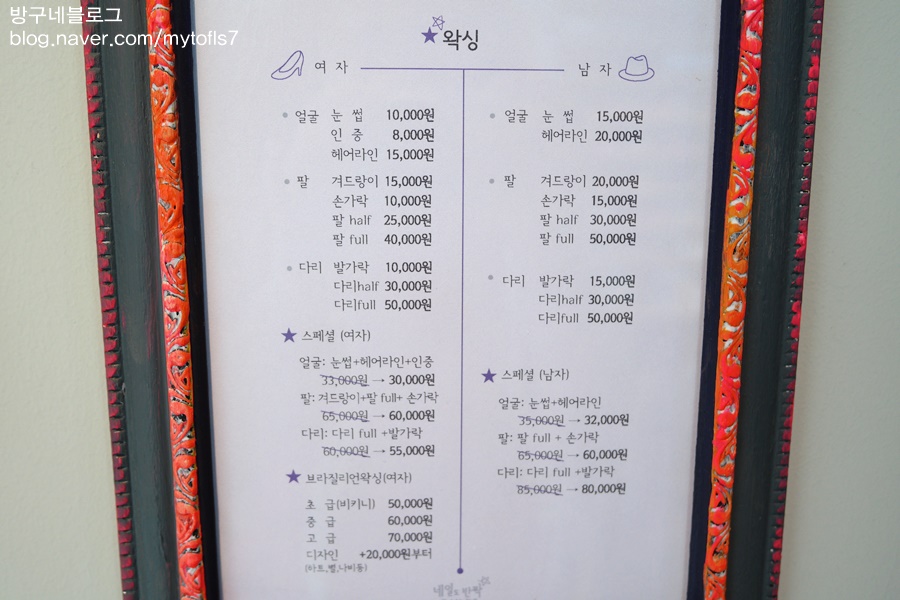 방구네블로그
blog.naver.com/mytofls7
왁싱
여 자
얼굴 눈 썹 10,000원
인 중 8,000원
헤어라인 15,000원
팔 겨드랑이 15,000원
손가락 10,000원
팔 half 25,000원
팔 full 40,000원
다리 발가락 10,000원
다리half 30,000원
다리full 50,000원
스페셜 (여자)
얼굴: 눈썹+헤어라인+인중
33,000원 → 30,000원
팔: 겨드랑이+팔 full+ 손가락
65,000원 → 60,000원
다리: 다리 full +발가락
60,000원 → 55,000원
브라질리언왁싱(여자)
초 급(비키니) 50,000원
중 급 60,000원
고 급 70,000원
디자인 +20,000원부터
(하트,별,나비등)
남 자
얼굴 눈 썹 15,000원
헤어라인 20,000원
팔 겨드랑이 20,000원
손가락 15,000원
팔 half 30,000원
팔 full 50,000원
다리 발가락 15,000원
다리half 30,000원
다리full 50,000원
스페셜 (남자)
얼굴: 눈썹+헤어라인
35,000원 → 32,000원
팔: 팔 full + 손가락
65,000원 → 60,000원
다리: 다리 full +발가락
85,000원 → 80,000원